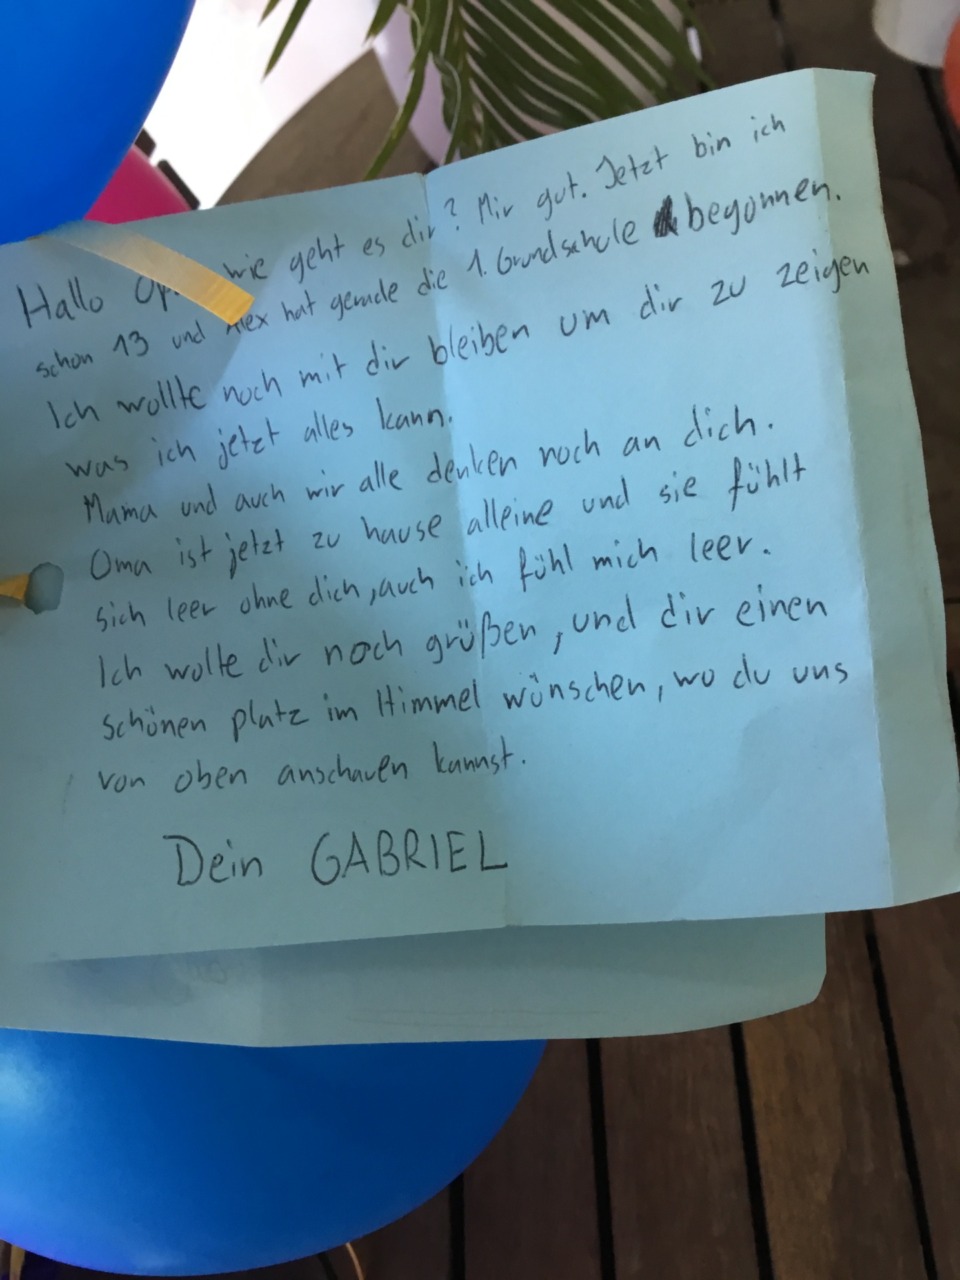 Hallo wie geht es dir? Mir gut. Jetzt bin ich
schon 13 und Alex hat gerade die 1. Grundschule begonnen.
Ich wollte noch mit dir bleiben um dir zu zeigen
was ich jetzt alles kann.
Mama und auch wir alle denken noch an dich.
Oma ist jetzt zu hause alleine und sie fühlt
sich leer ohne dich, auch ich fühl mich leer.
Ich wolte dir noch grüßen, und dir einen
schönen platz im Himmel wünschen, wo du uns
von oben anschauen kannst.
Dein GABRIEL